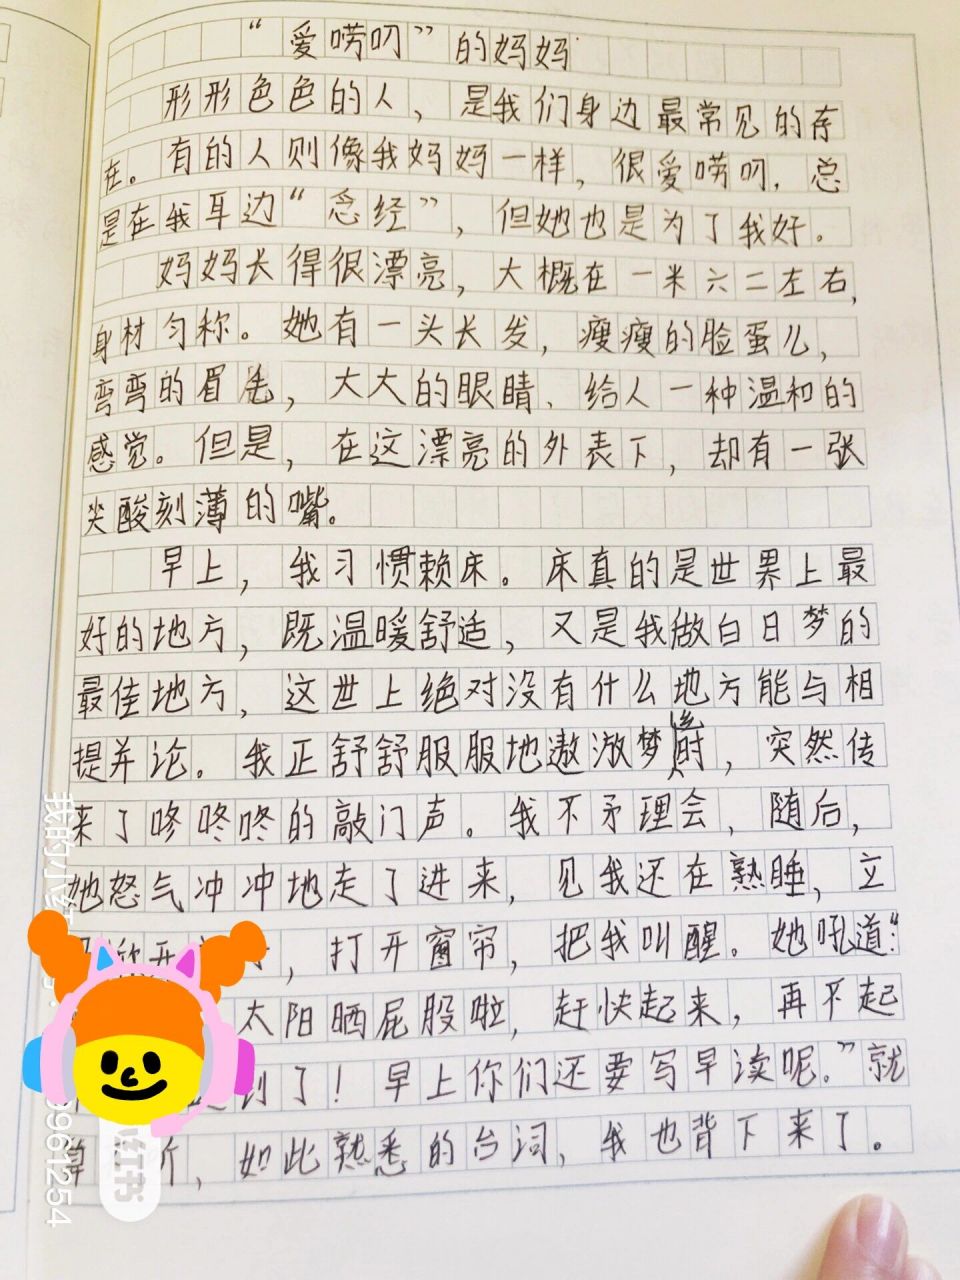 “爱唠叨”的妈妈
形形色色的人，是我们身边最常见的存
在。有的人则像我妈妈一样，很爱唠叨，总
是在我耳边“念经”，但她也是为了我好。
妈妈长得很漂亮，大概在一米六二左右，
身材匀称。她有一头长发，瘦瘦的脸蛋儿，
弯弯的眉毛，大大的眼睛、给人一种温和的
感觉。但是，在这漂亮的外表下，却有一张
尖酸刻薄的嘴。
早上，我习惯赖床。床真的是世界上最
好的地方，既温暖舒适，又是我做白日梦的
最佳地方，这世上绝对没有什么地方能与相
提并论。我正舒舒服服地遨游梦乡时，突然传
来了咚咚咚的敲门声。我不予理会，随后，
她怒气冲冲地走了进来，见我还在熟睡，立
掀开，打开窗帘，把我叫醒。她吼道：“
太阳晒屁股啦，赶快起来，再不起
到了！早上你们还要写早读呢。”就
算，如此熟悉的台词，我也背下来了。
我的小红书
961254